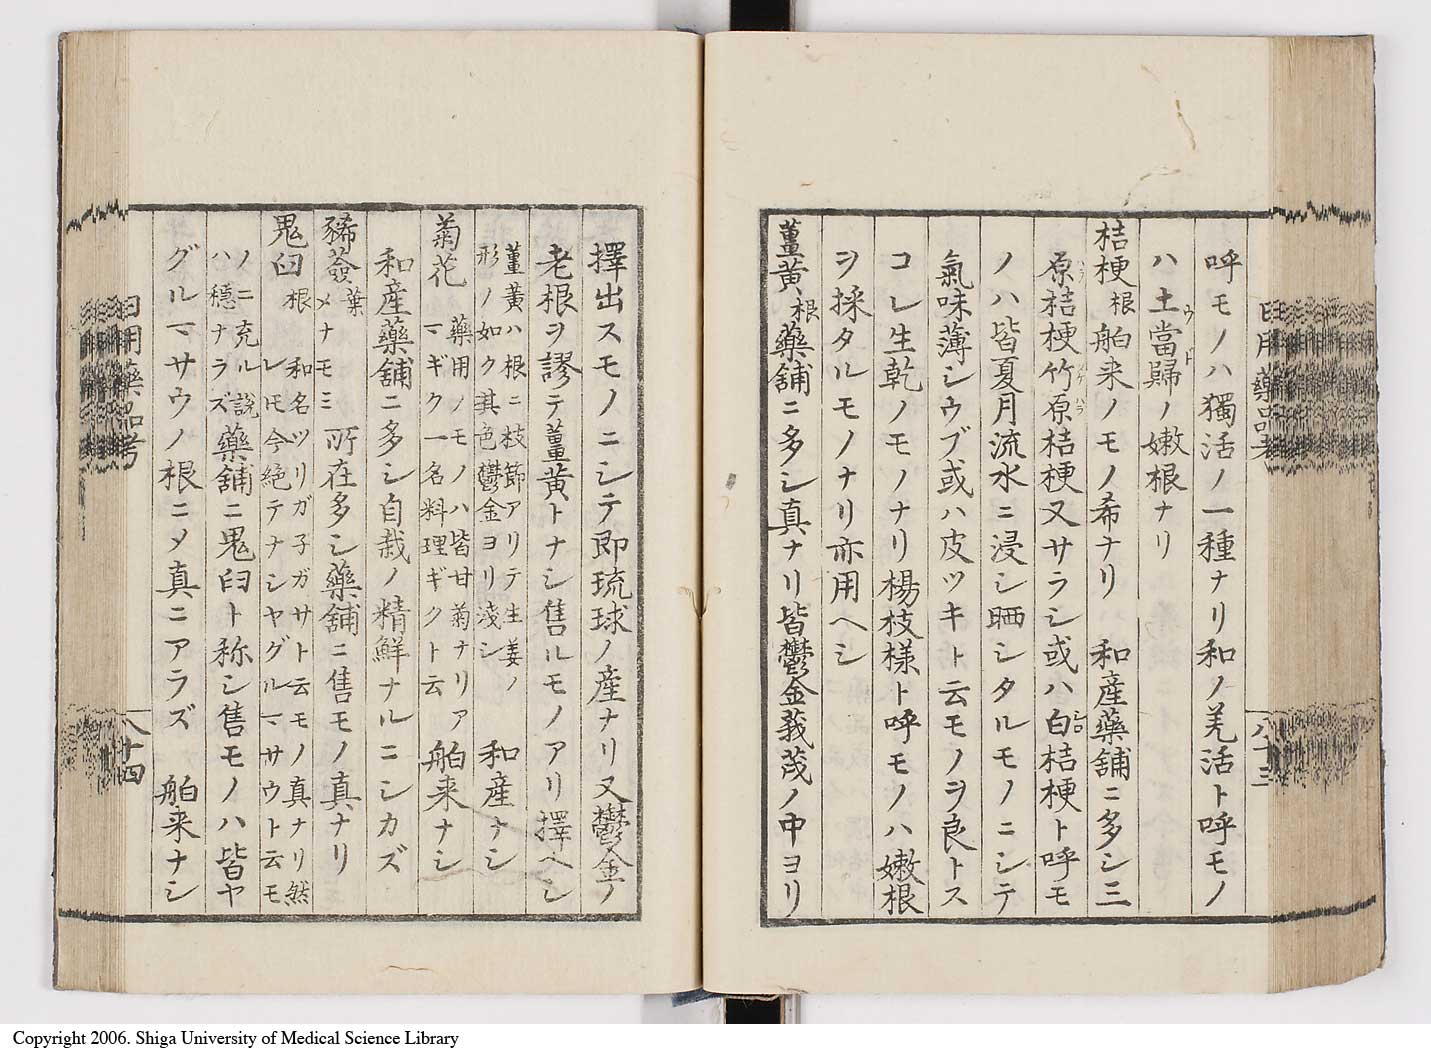 呼モノハ獨活ノ一種ナリ和ノ羌活ト呼モノ
ハ土當歸ノ嫩根ナリ
ウド
桔梗根舶来ノモノ希ナリ 和産藥舗ニ多シ三
原桔梗竹原桔梗又サラシ或ハ白桔梗ト呼モ
ハラ タケハラ シロ
ノハ皆夏月流水ニ浸シ晒シタルモノニシテ
氣味薄シウブ或ハ皮ツキト云モノヲ良トス
コレ生乾ノモノナリ楊枝様ト呼モノハ嫩根
ヲ採タルモノナリ亦用ヘシ
薑黄根藥舗ニ多シ真ナリ皆鬱金莪茂ノ中ヨリ
日用藥品考
八十三
擇出スモノニシテ即琉球ノ産ナリ又鬱金ノ
老根ヲ謬テ薑黄トナシ售ルモノアリ擇ヘシ
薑黄ハ根ニ枝節アリテ生姜ノ
形ノ如ク其色鬱金ヨリ淺シ 和産ナシ
菊花 藥用ノモノハ皆甘菊ナリア
マギク一名料理ギクト云 舶来ナシ
和産藥舗ニ多シ自栽ノ精鮮ナルニシカズ
豨薟葉メナモミ所在多シ藥舗ニ售モノ真ナリ
鬼臼根 和名ツリガ子ガサト云モノ真ナリ然
レモ今絶テナシヤグルマサウト云モ
ノニ充ル説
ハ穏ナラズ藥舗ニ鬼臼ト称シ售モノハ皆ヤ
グルマサウノ根ニメ真ニアラズ 舶来ナシ
日用藥品考
八十四
Copyright 2006. Shiga University of Medical Science Library